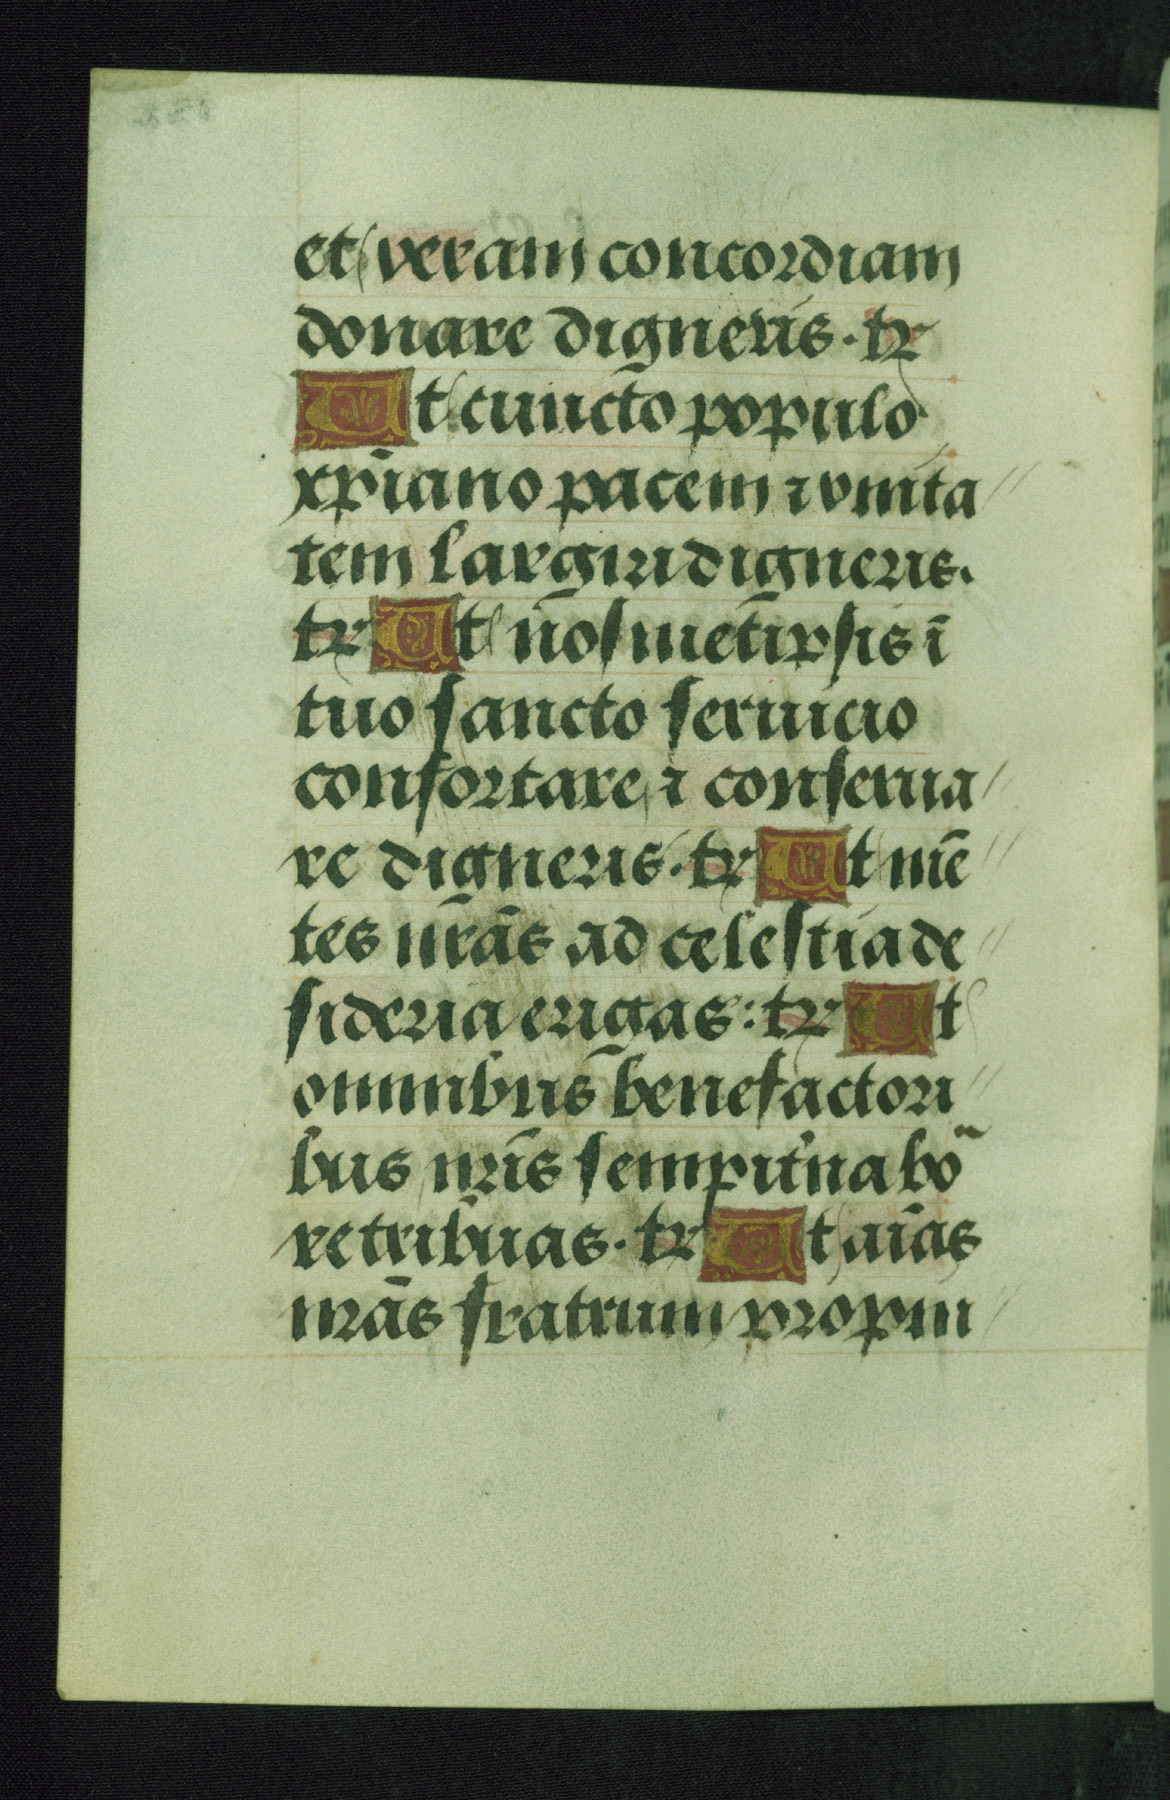 et veram concordiam
donare digneris. tr
Ut cuncto populo
xp̄iano pacem ⁊ vnita
tem largiri digneris.
tr Ut nosmetipsis ī
tuo sancto seruicio
confortare ⁊ conserua
re digneris. tr Ut mē
tes nr̄as ad celestia de
sideria erigas: tr Ut
omnibus benefactori
bus nr̄is sempit'na bo
retribuas. tr Ut aīas
nr̄as fratrum propin